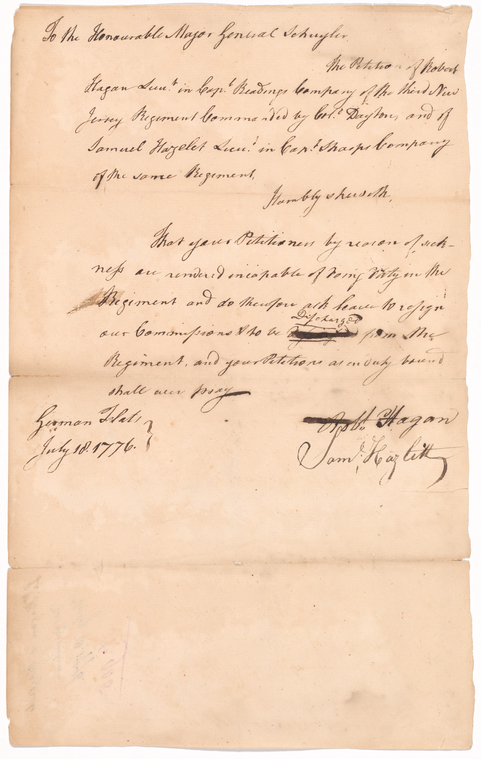 To the Honourable Major General Schuyler
The Petition of Robert
Hagan Lieut. in Capt. Readings Company of the third New
Jersey Regiment Commanded by Col. Dayton, and of
Samuel Hazelet Lieut. in Capt. Sharps Company
of the same Regiment.
Humbly sheweth.
That your Petitioners by reason of sick-
ness are rendered incapable of doing Duty in the
Regiment and do therefore ask leave to resign
our Commissions & to be Discharged from the
Regiment, and your Petitions as in duty bound
shall ever pray
German Flats
July 18. 1776.
Robt. Hagan
Saml. Hazlitt